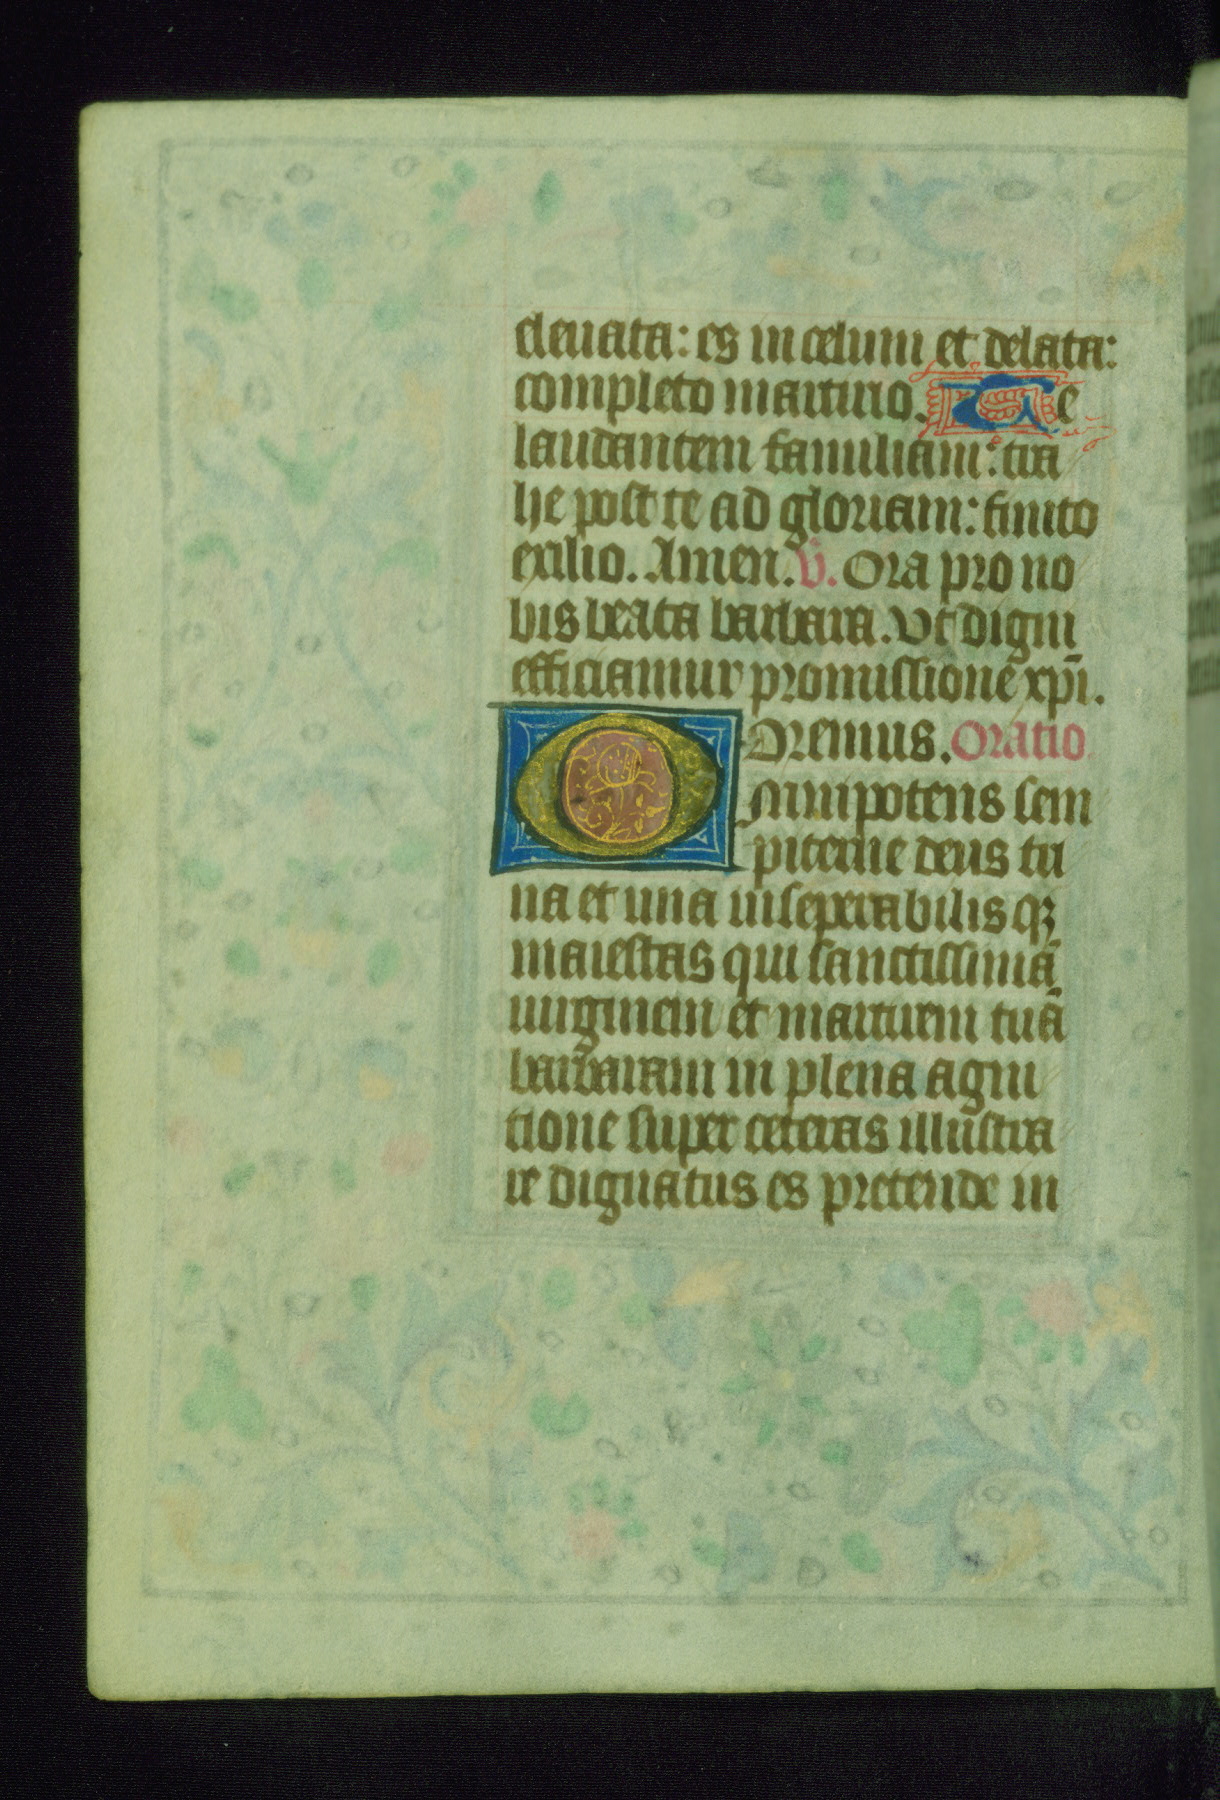 eleuata: es in celum et delata:
completo martirio. Te
laudantem familiam: tra
he post te ad gloriam: finito
exilio. Amen. V. Ora pro no
bis beata barbara. Vt digni
efficiamur promissionē xp̄i.
Oremus. Oratio
Omnipotens sem
piterne deus tri
na et una inseperabilis qꝫ
maiestas qui sanctissimā
uirginem et martirem tuā
barbaram in plena agni
tione super ceteras illustra
re dignatus es pretende in